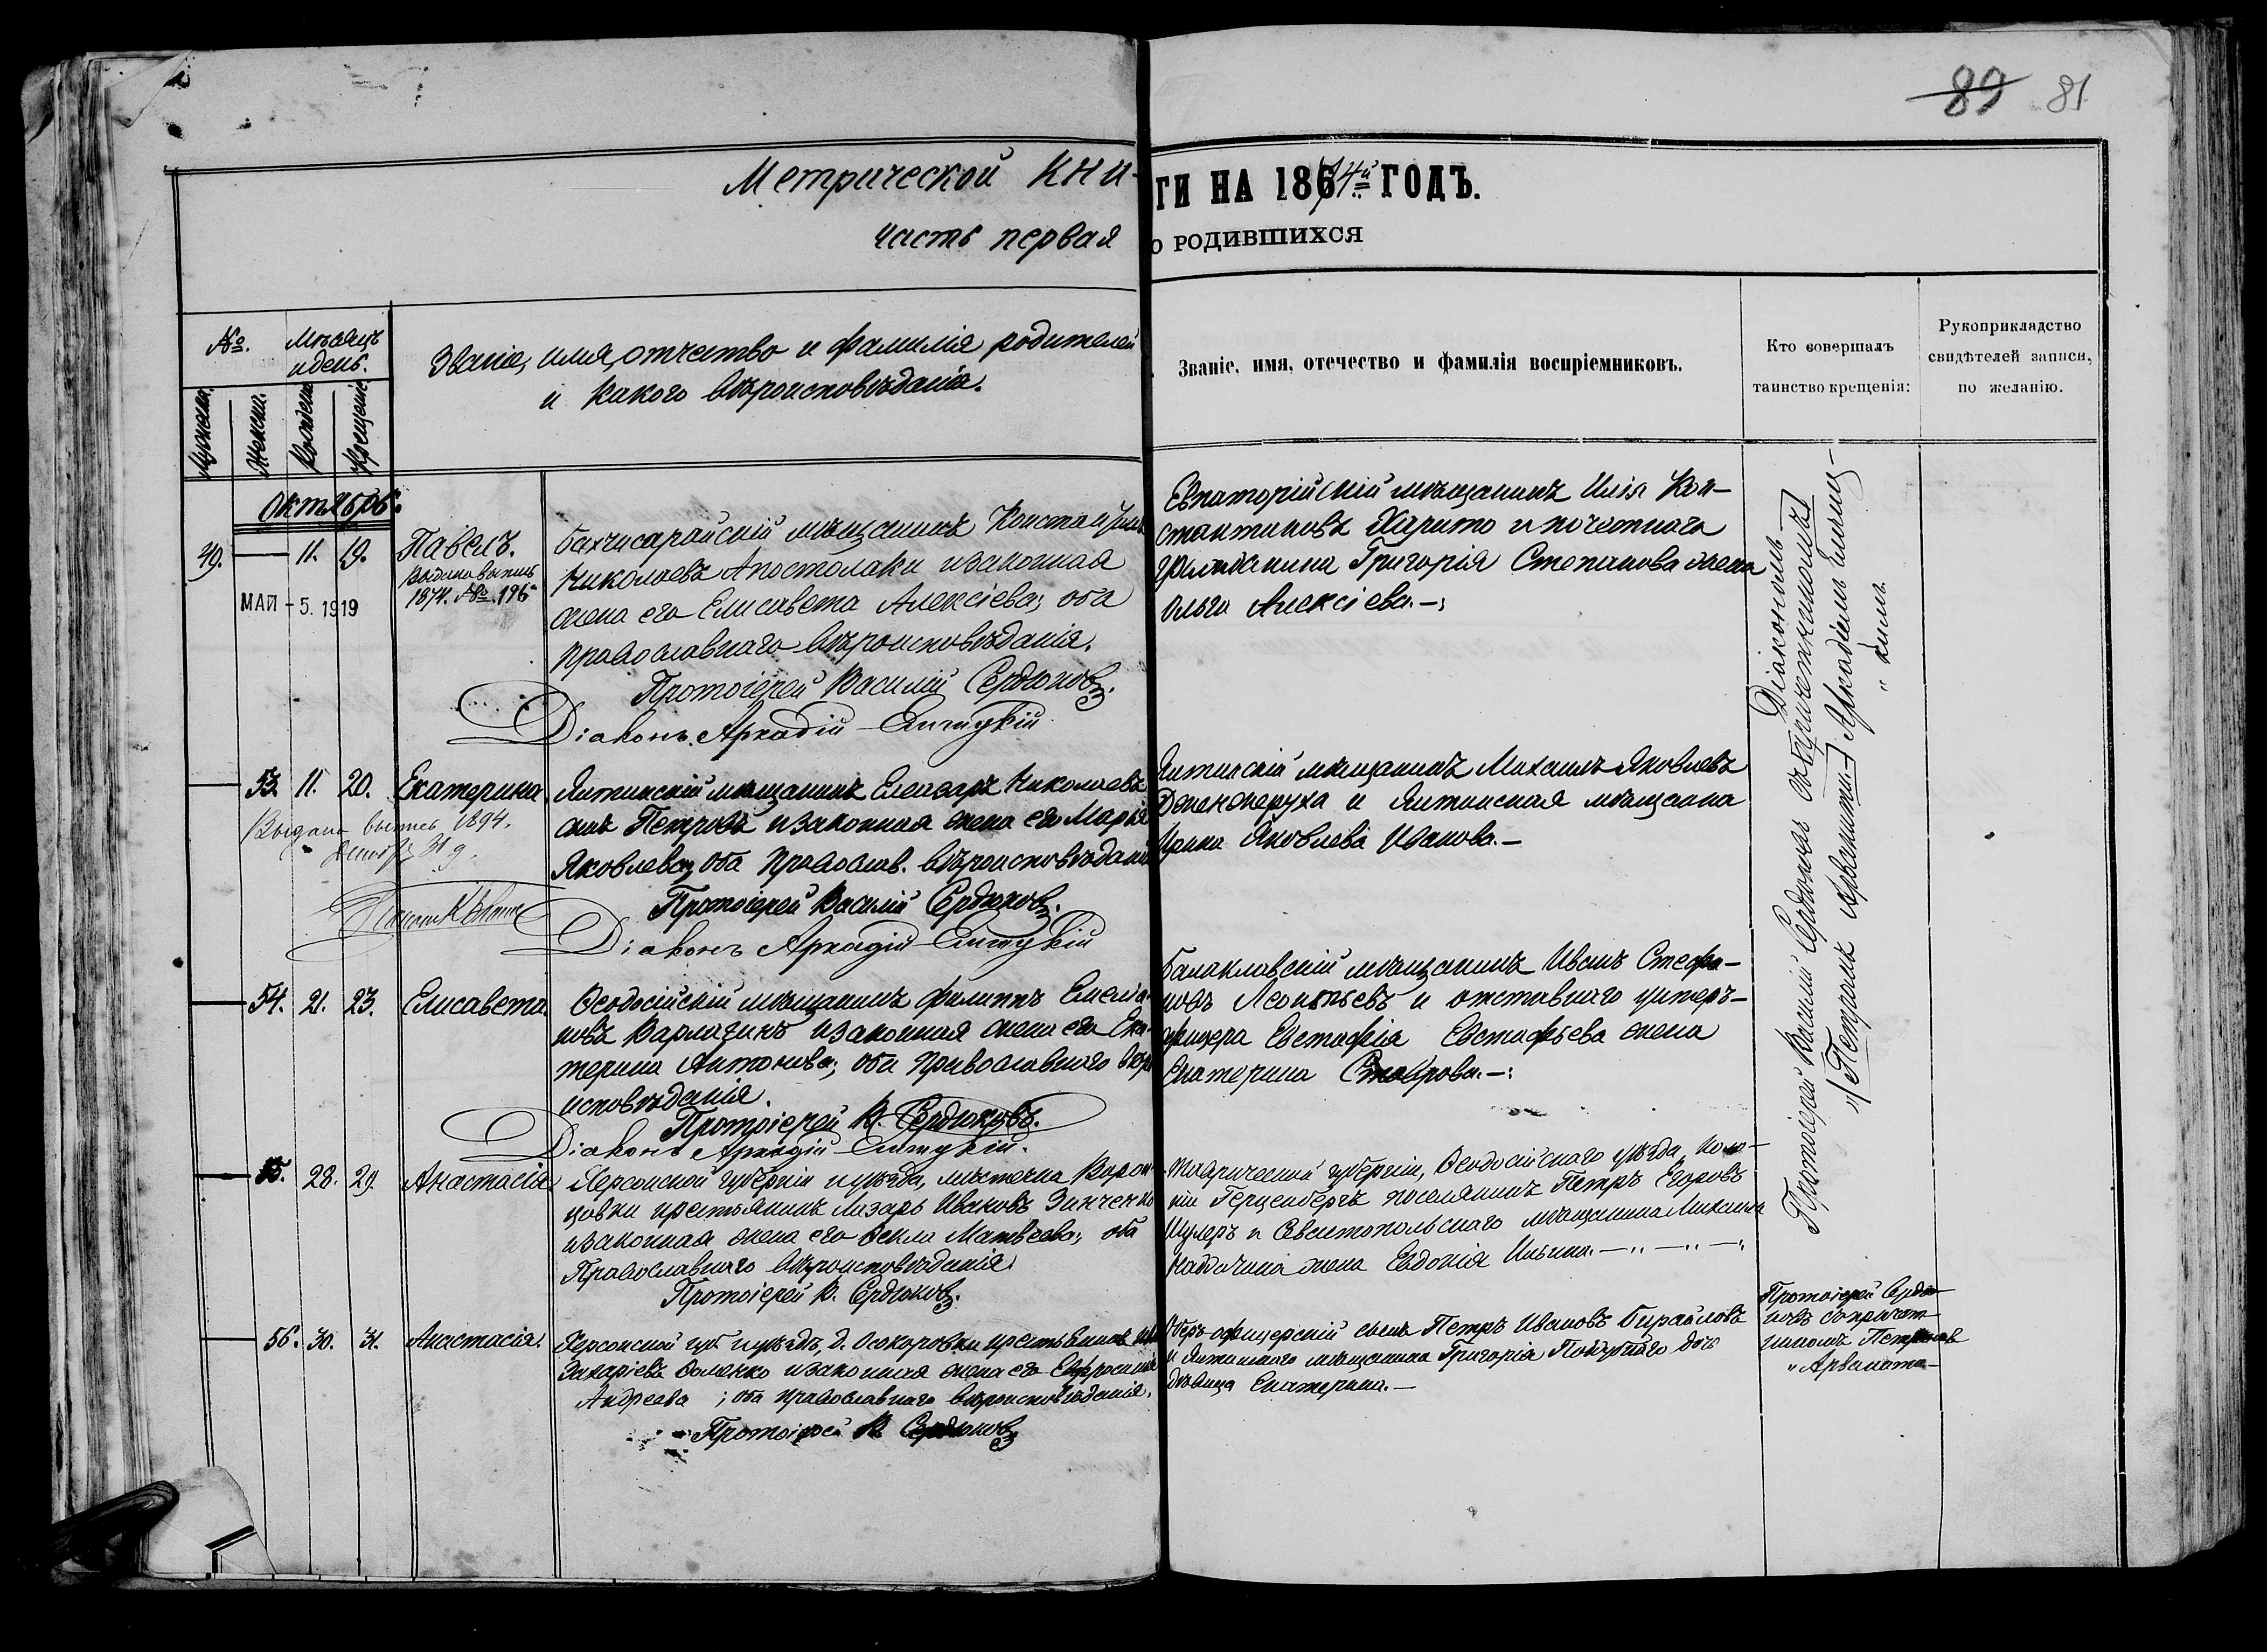 89 81
Метрической КНИ-
ГИ НА 1874й ГОДЪ.
часть первая
О РОДИВШИХСЯ
№.
Мѣсяцъ
и день.
Мужеска.
Женска.
Рожденія
Крещенія
Званіе, имя, отчество и фамилія родителей
и какого вѣроисповѣданія.
Званіе, имя, отечество и фамилія воспріемниковъ.
Кто совершалъ
таинство крещенія:
Рукоприкладство
свидѣтелей записи,
по желанію.
Октябрь.
49. 11. 19. Павелъ.
Выдана выпись
1874. №. 196
МАЙ - 5. 1919
Бахчисарайскій мѣщанинъ Константинъ
Николаевъ Апостолаки и законная
жена его Елисавета Алексіева; оба
православнаго вѣроисповѣданія.
Протоіерей Василій Сердюковъ.
Діаконъ Аркадій
Евпаторійскій мѣщанинъ Илія Кон-
стантиновъ Харито и почетнаго
гражданина Григорія Степанова жена
Ольга Алексіева.-:
53. 11. 20. Екатерина
Выдана выпись 1894.
Ялтинскій мѣщанинъ Елеазаръ Николаевъ
сынъ Петровъ и законная жена его Марія
Яковлева; оба православ. вѣроисповѣданія
Протоіерей Василій Сердюковъ.
Діаконъ Аркадій
Ялтинскій мѣщанинъ Михаилъ Яковлевъ
Дженджеруха и Ялтинская мѣщанка
Ирина Яковлева Иванова.-
54. 21. 23. Елисавета.
Ѳеодосійскій мѣщанинъ Филиппъ Емелья-
новъ Варлагинъ и законная жена его Ека-
терина Антонова; оба православнаго вѣро
исповѣданія.
Протоіерей В. Сердюковъ.
Діаконъ Аркадій
Балаклавскій мѣщанинъ Иванъ Стефа-
новъ Леонтьевъ и отставнаго унтеръ-
фицера Евстафія Евстафьева жена
Екатерина Ставрова.-:
55. 28. 29. Анастасія.
Херсонской губерніи и уѣзда, мѣстечка Ворон-
цовки крестьянинъ Лазарь Ивановъ Зинченко
и законная жена его Ѳекла Матвѣева; оба
Православнаго вѣроисповѣданія.
Протоіерей В. Сердюковъ.
Таврической губерніи, Ѳеодосійскаго уѣзда, коло-
ніи Герценбергъ поселянинъ Петръ Егоровъ
Шулеръ и Севастопольскаго мѣщанина Михаила
жена Евдокія Ильина.
56. 30. 31. Анастасія.
Херсонской губ. и уѣзда, д. Осокоровки крестьянинъ
Захаріевъ и законная жена его Евфросинія
Андреева; оба православнаго вѣроисповѣданія.
Протоіерей В. Сердюковъ
Оберъ-офицерскій сынъ Петръ Ивановъ
и Ялтинскаго мѣщанина Григорія Поддубнаго дочь
дѣвица Екатерина.-
Протоіерей Василій Сердюковъ съ Діакономъ
Аркадіемъ
Петромъ
Протоіерей Сердю-
ковъ съ причет-
никомъ Петромъ